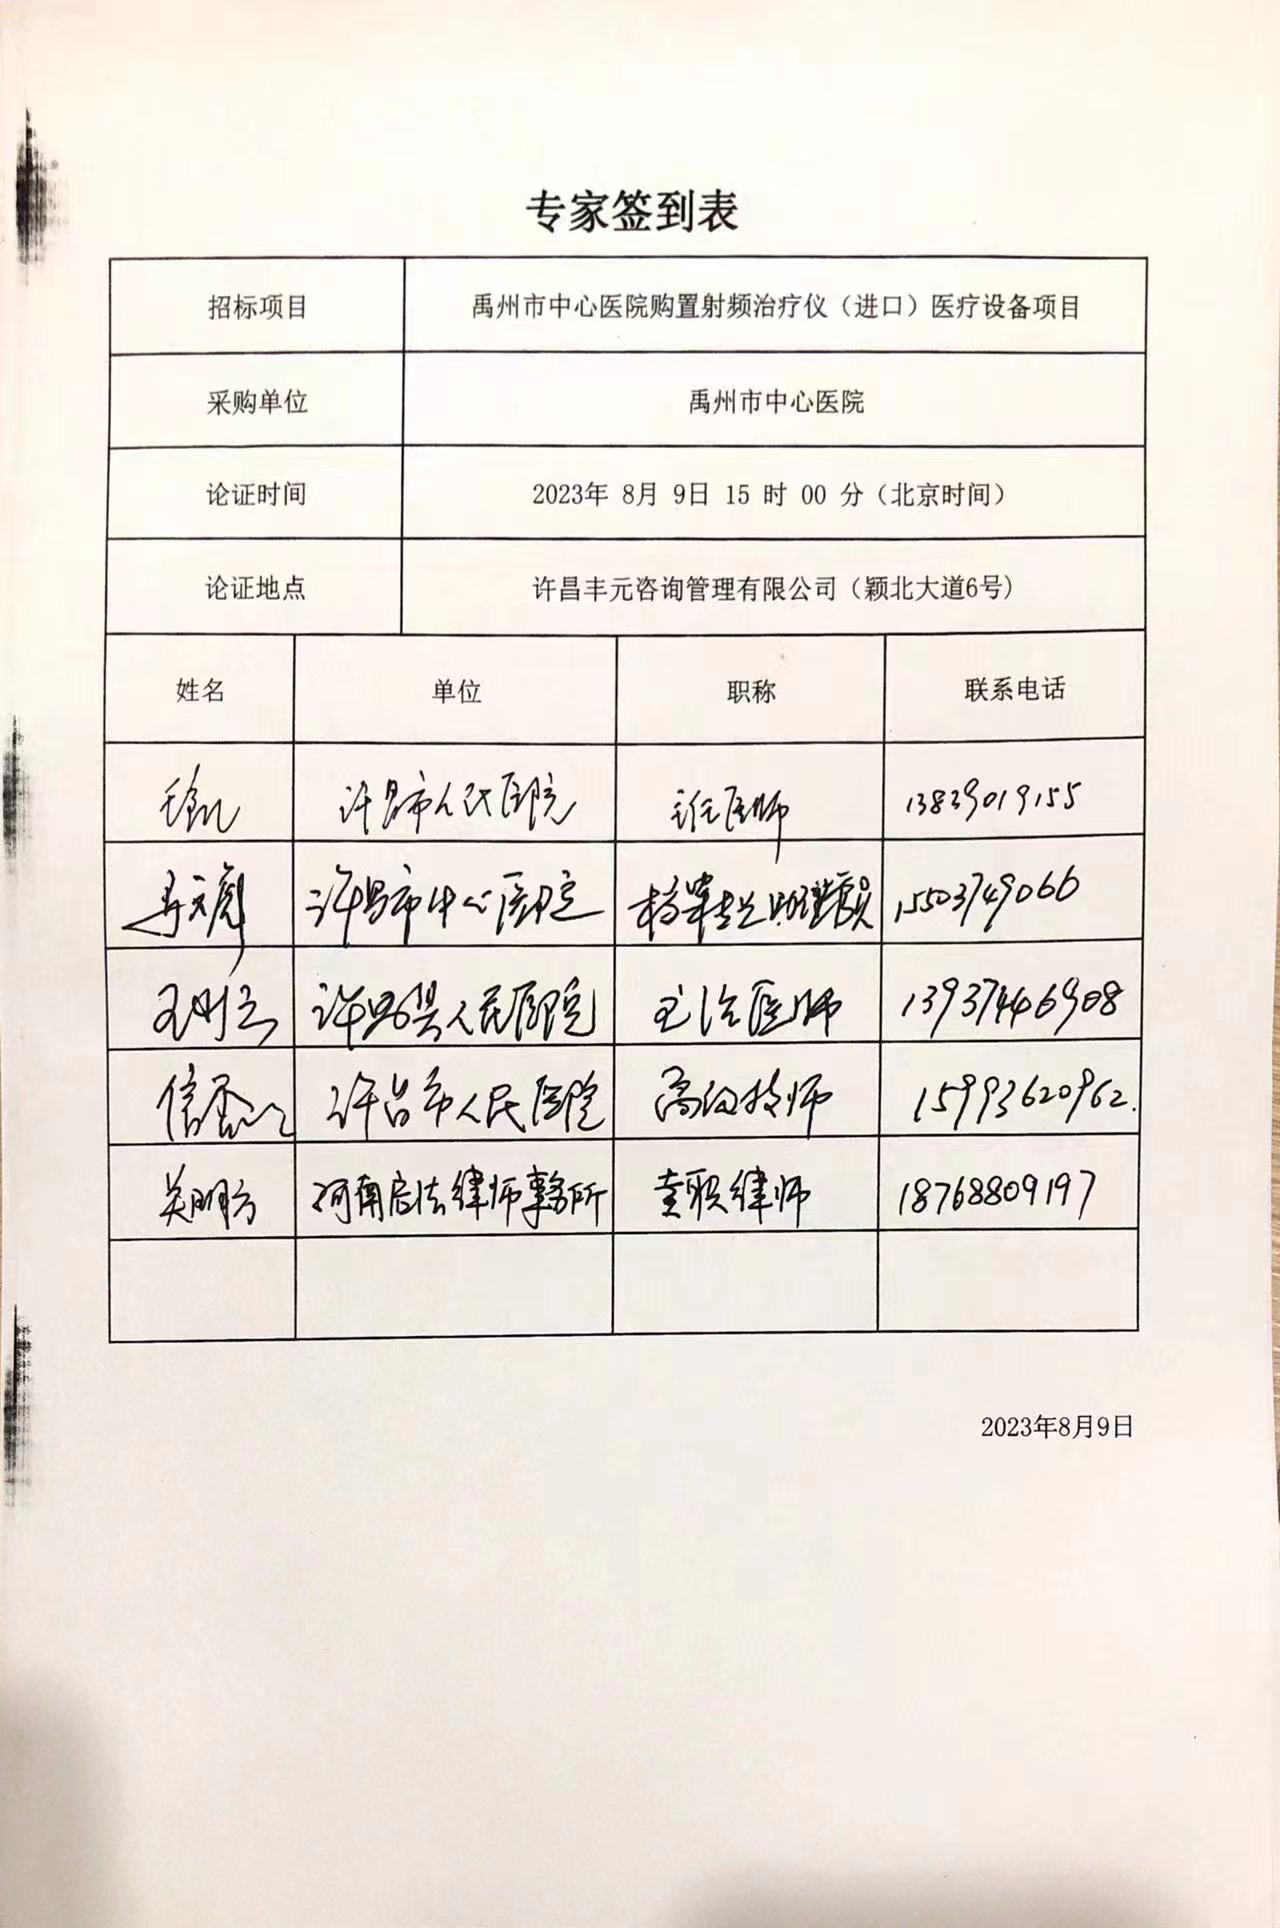 专家签到表
招标项目 禹州市中心医院购置射频治疗仪（进口）医疗设备项目
采购单位 禹州市中心医院
论证时间 2023年 8月 9日 15 时 00 分（北京时间）
论证地点 许昌丰元咨询管理有限公司（颖北大道6号）
姓名 单位 职称 联系电话
许昌市人民医院 主任医师 13839019155
许昌市中心医院 15503749066
许昌县人民医院 主治医师 13937446908
许昌市人民医院 高级技师 15993620962.
河南启法律师事务所 专职律师 18768809197
2023年8月9日